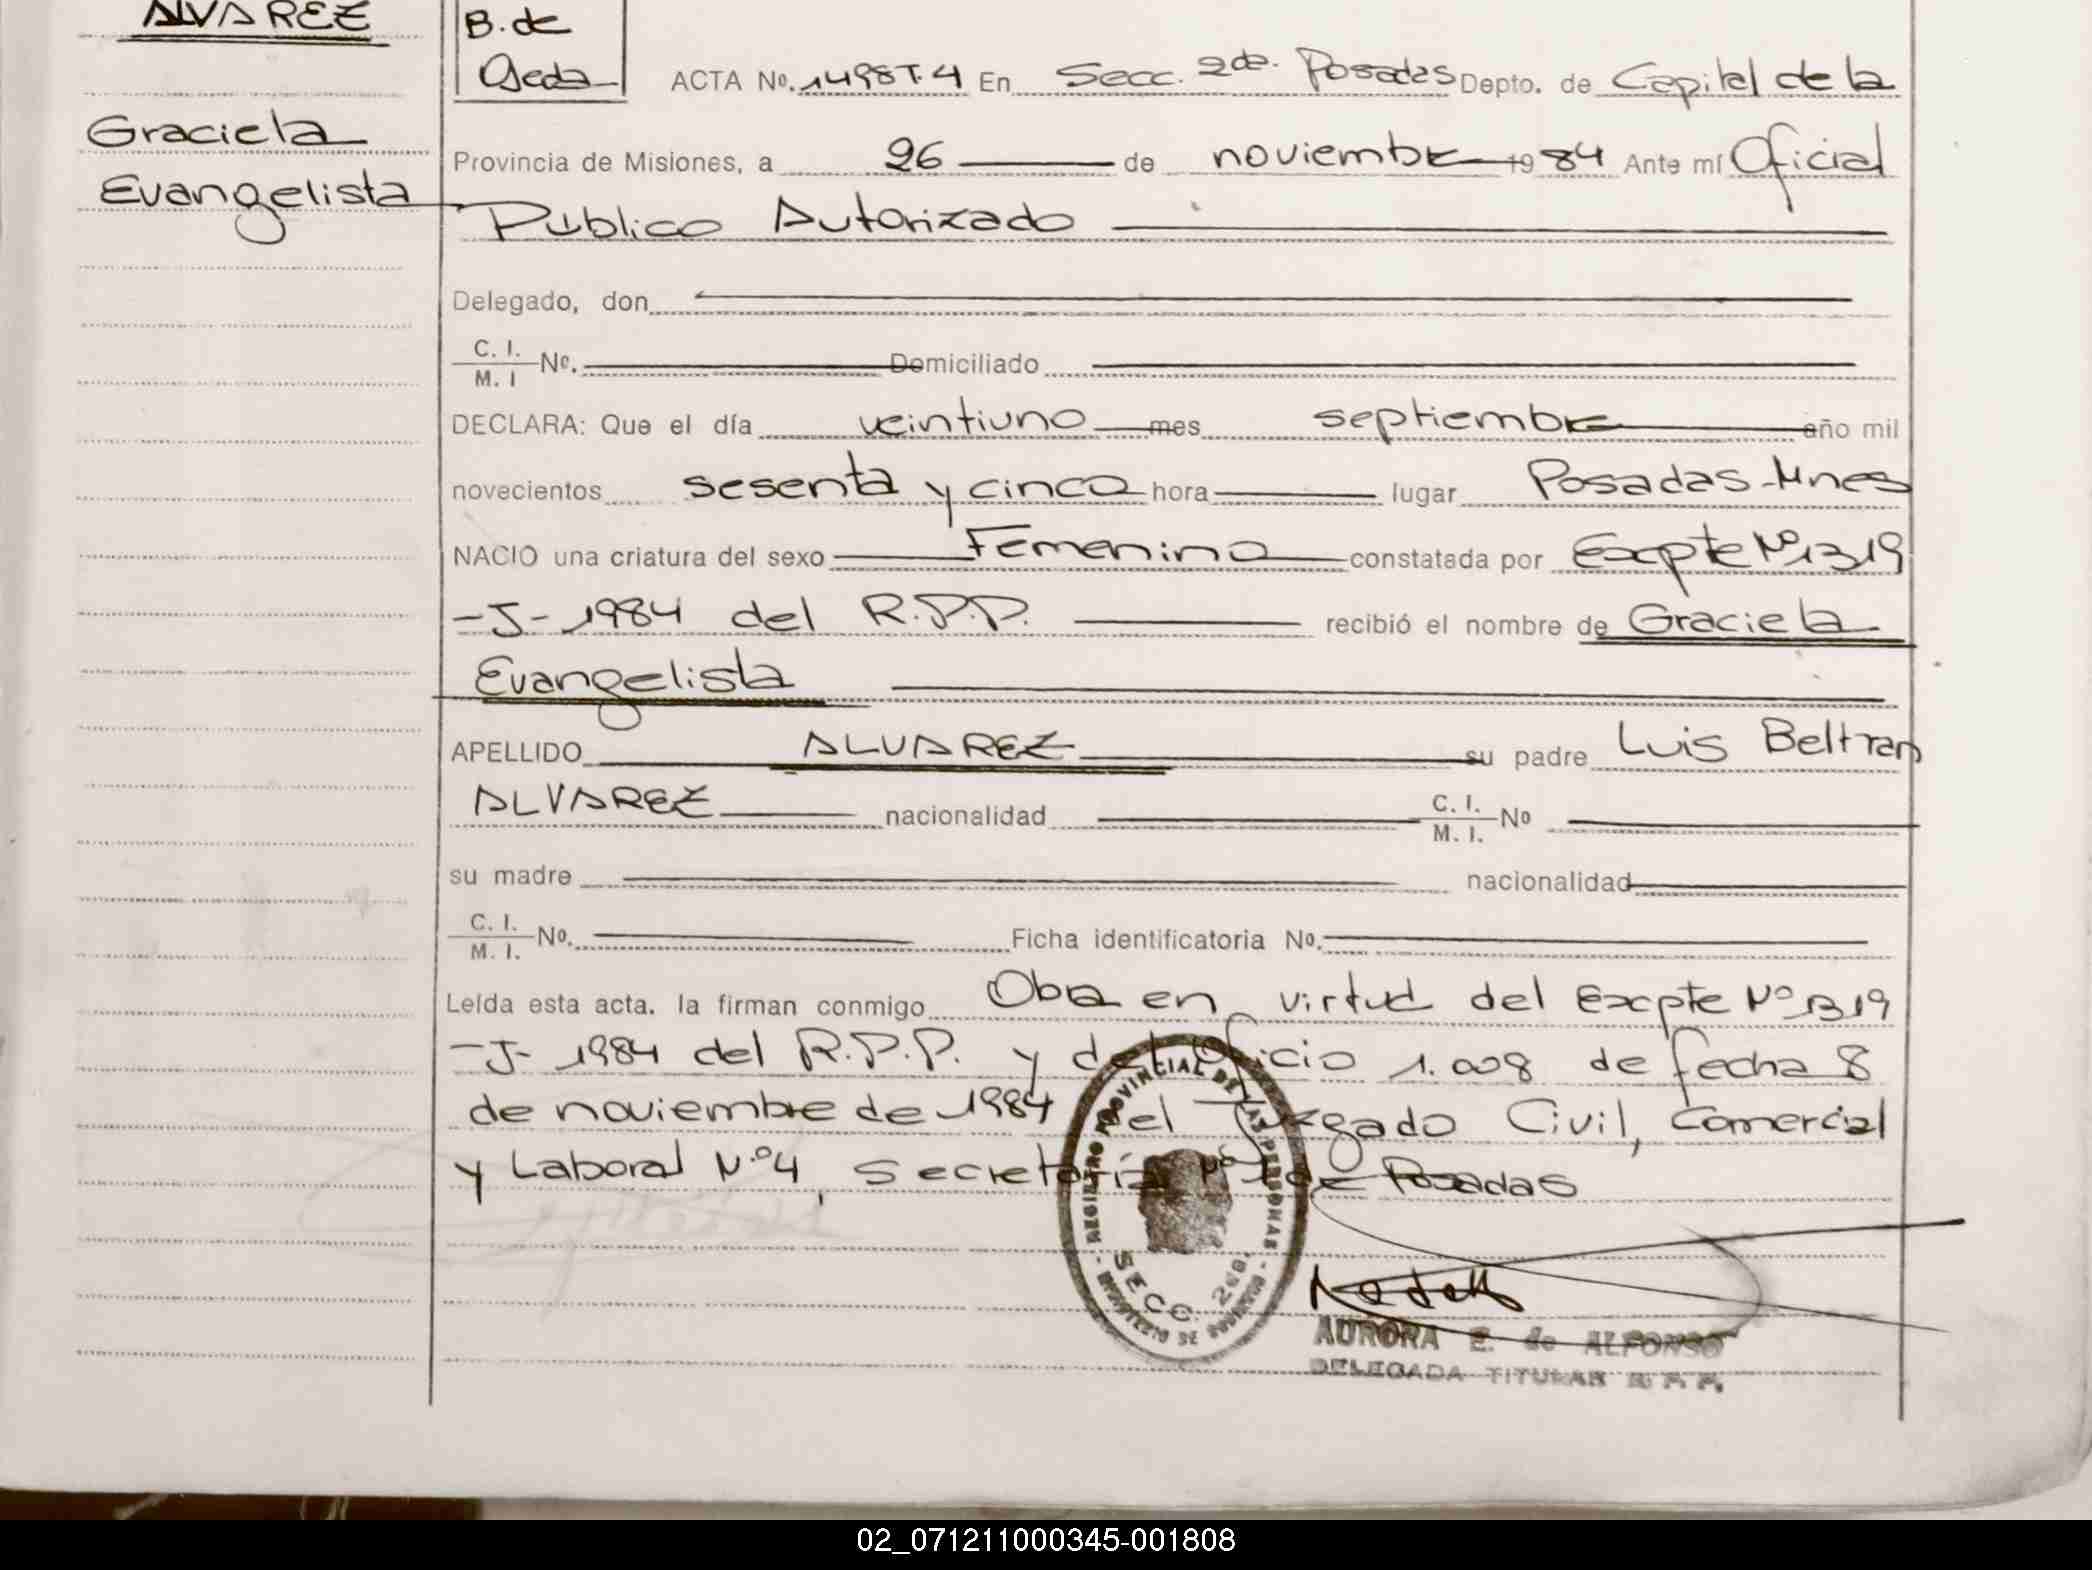 ALVAREZ
Graciela
Evangelista
B. de
Ojeda
ACTA Nº. 1498 T. 4 En Secc. 2da. Posadas Depto. de Capital de la
Provincia de Misiones, a 26 de noviembre 1984 Ante mí Oficial
Público Autorizado
Delegado, don
C. I.
M. I Nº. Domiciliado
DECLARA: Que el día veintiuno mes septiembre año mil
novecientos sesenta y cinco hora lugar Posadas-Mnes
NACIO una criatura del sexo Femenino constatada por Excpte Nº 1319
-J- 1984 del R.P.P. recibió el nombre de Graciela
Evangelista
APELLIDO ALVAREZ su padre Luis Beltran
ALVAREZ nacionalidad C. I.
M. I. Nº
su madre nacionalidad
C. I.
M. I. Nº. Ficha identificatoria Nº.
Leída esta acta. la firman conmigo Obra en virtud del Excpte Nº 1319
-J- 1984 del R.P.P. y del Oficio 1.008 de fecha 8
de noviembre de 1984 del Juzgado Civil, Comercial
y Laboral N.º 4, Secretaría Nº 1 de Posadas
REGISTRO PROVINCIAL DE LAS PERSONAS
SECC. 2da.
MINISTERIO DE GOBIERNO
AURORA E. de ALFONSO
DELEGADA TITULAR R. P. P.
02_071211000345-001808